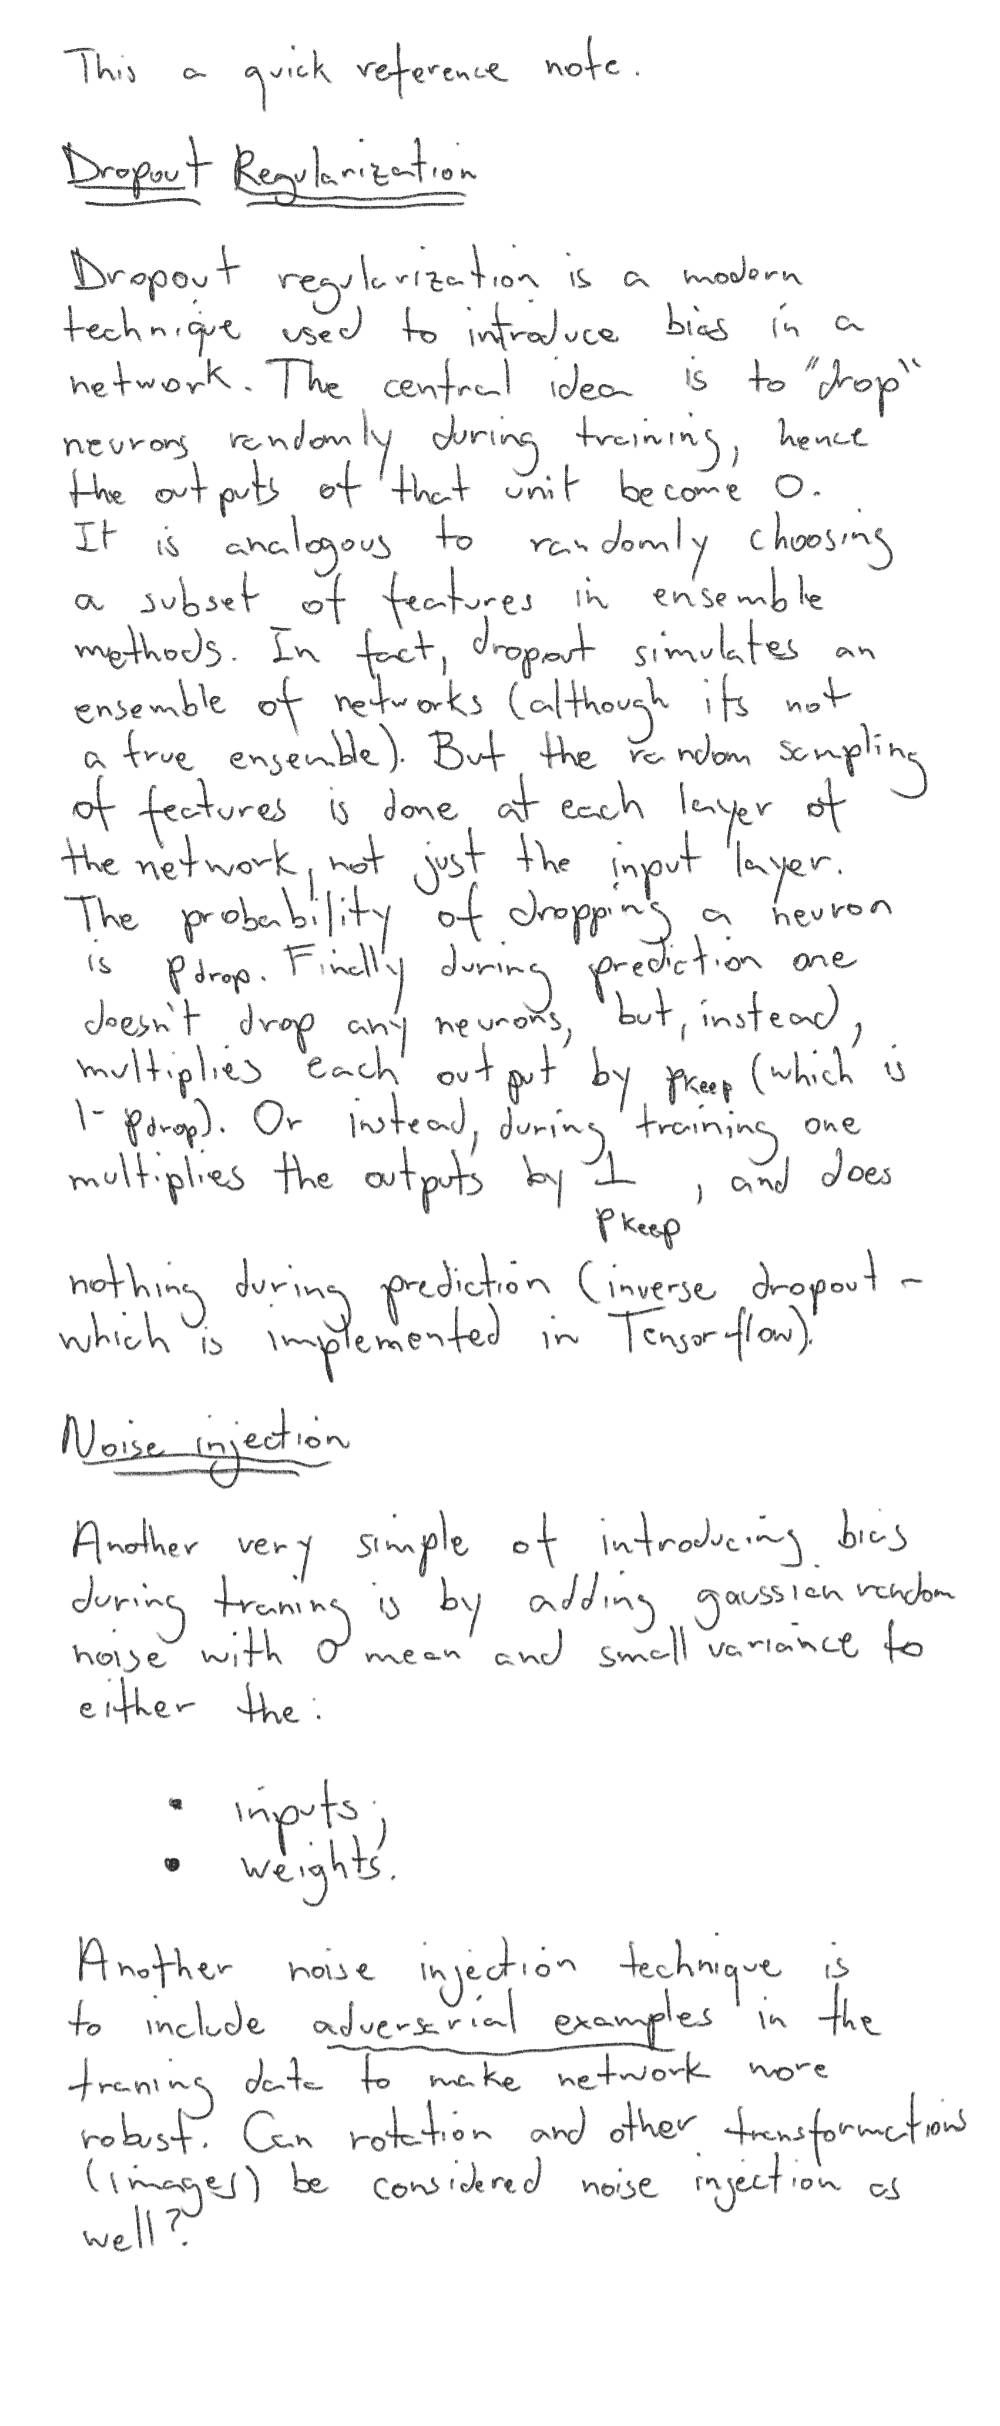 This a quick reference note.
Dropout Regularization
Dropout regularization is a modern
technique used to introduce bias in a
network. The central idea is to "drop"
neurons randomly during training, hence
the outputs of that unit become 0.
It is analogous to randomly choosing
a subset of features in ensemble
methods. In fact, dropout simulates an
ensemble of networks (although its not
a true ensemble). But the random sampling
of features is done at each layer of
the network, not just the input layer.
The probability of dropping a neuron
is pdrop. Finally during prediction one
doesn't drop any neurons, but, instead,
multiplies each output by pkeep (which is
1- pdrop). Or instead, during training one
multiplies the outputs by 1 , and does
pkeep
nothing during prediction (inverse dropout -
which is implemented in Tensorflow).
Noise injection
Another very simple of introducing bias
during traning is by adding gaussian random
noise with 0 mean and small variance to
either the:
• inputs;
• weights.
Another noise injection technique is
to include adverserial examples in the
traning data to make network more
robust. Can rotation and other transformations
(images) be considered noise injection as
well?